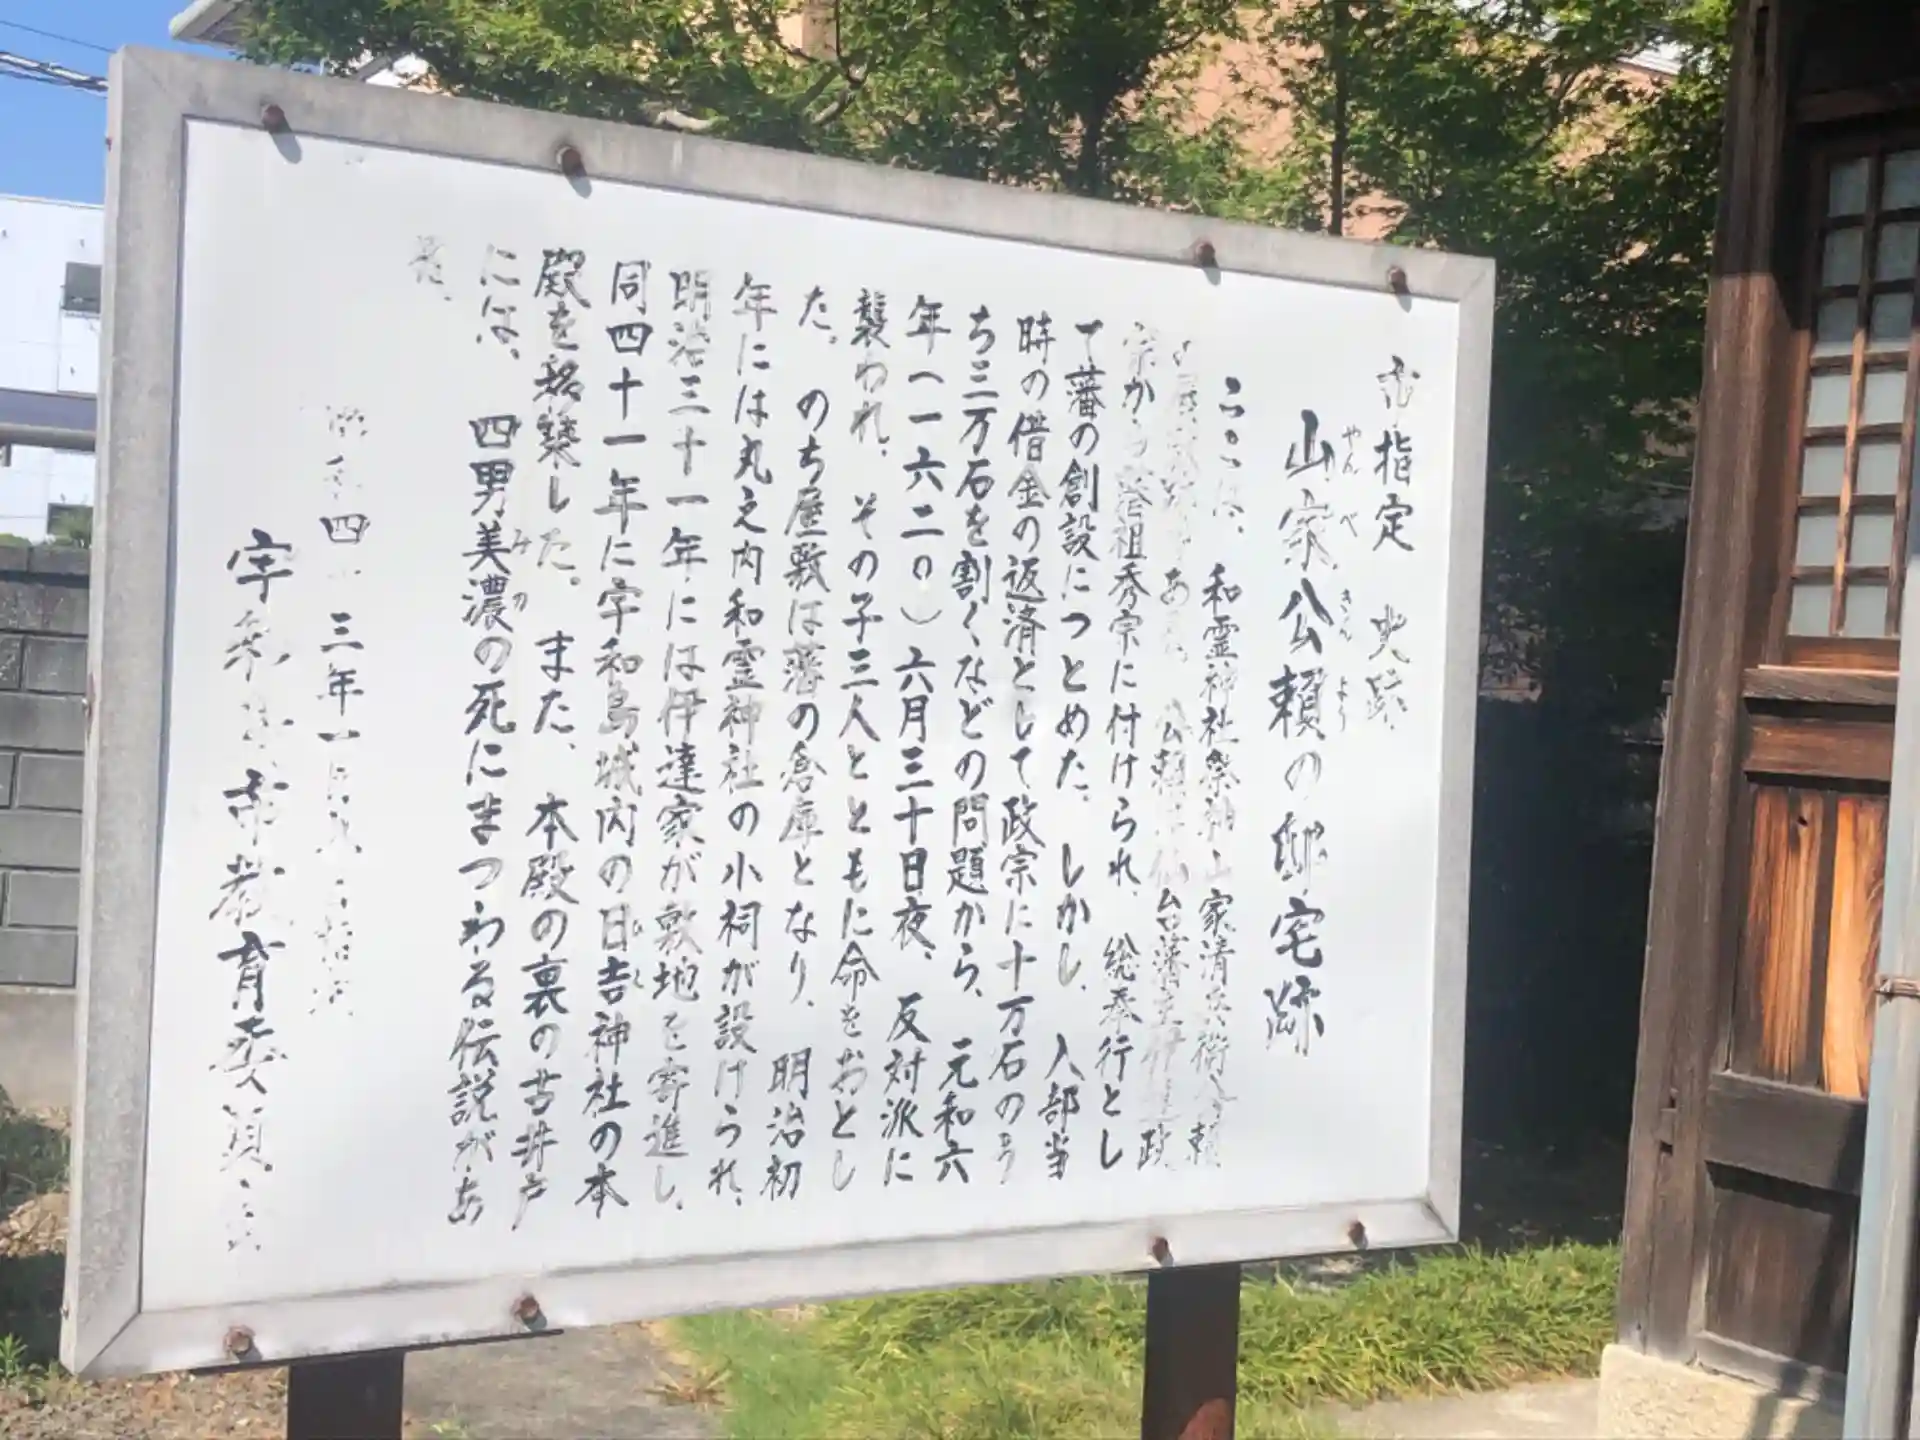 市指定 史跡
山家公頼の邸宅跡
やんべ きんよう
ここは、和霊神社祭神山家清兵衛公頼
の屋敷跡である。公頼は仙台藩主伊達政
宗から藩祖秀宗に付けられ、総奉行とし
て藩の創設につとめた。しかし、入部当
時の借金の返済として政宗に十万石のう
ち三万石を割くなどの問題から、元和六
年(一六二〇)六月三十日夜、反対派に
襲われ、その子三人とともに命をおとし
た。のち屋敷は藩の倉庫となり、明治初
年には丸之内和霊神社の小祠が設けられ、
明治三十一年には伊達家が敷地を寄進し、
同四十一年に宇和島城内の日吉神社の本
殿を移築した。また、本殿の裏の古井戸
には、四男美濃の死にまつわる伝説があ
る。
四 三年一月
宇和島市教育委員会